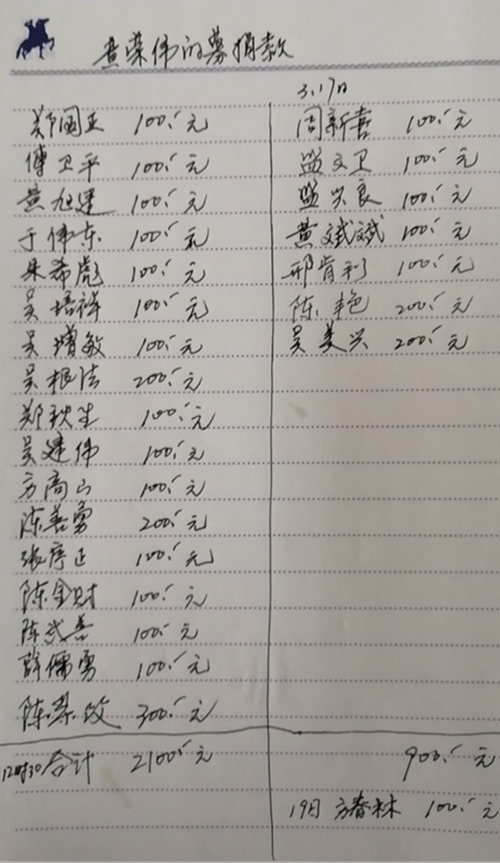 黄荣伟的募捐款
郑国亚 100.元
傅卫平 100.元
黄旭建 100.元
于伟东 100.元
朱希彪 100.元
吴培祥 100.元
吴增敏 100.元
吴根法 200.元
郑秋生 100.元
吴建伟 100.元
方高山 100.元
陈善勇 200.元
张序正 100.元
陈金财 100.元
陈武善 100.元
薛儒勇 100.元
陈 300.元
12时30合计 2100.元
3.17日
周新喜 100.元
盛文卫 100.元
盛兴良 100.元
黄斌斌 100.元
邢肯利 100.元
陈艳 200.元
吴美兴 200.元
900.元
19日 方春林 100.元